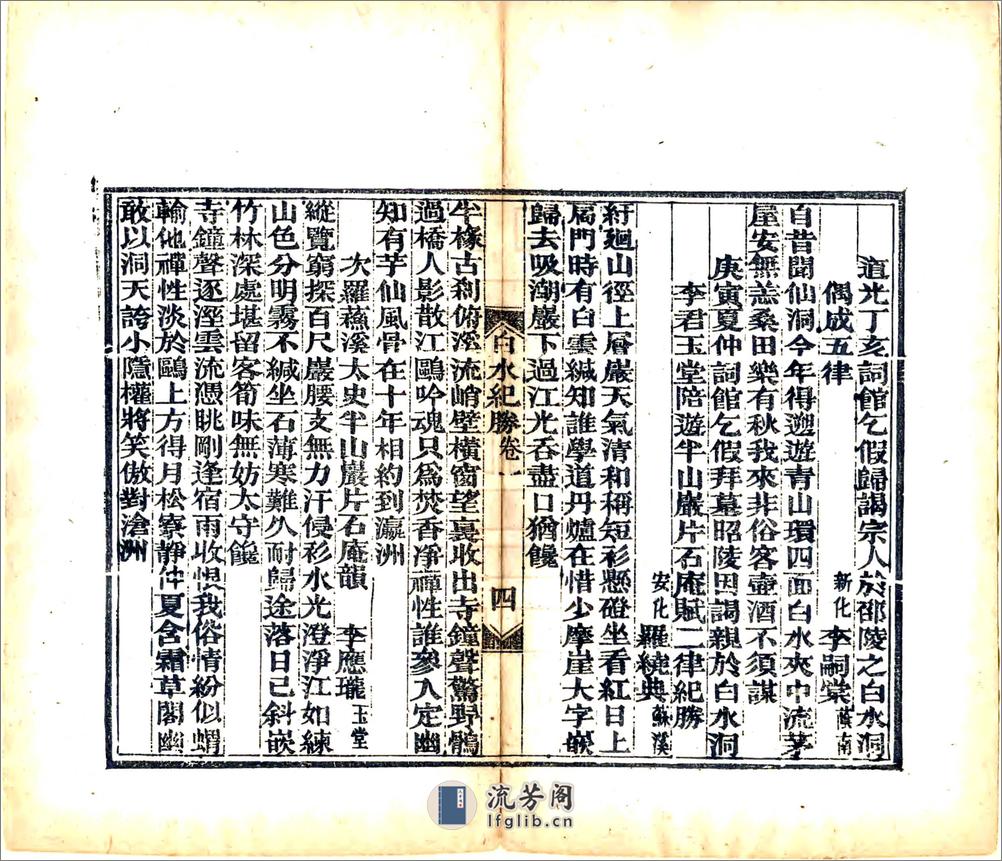 道光丁亥詞館乞假歸謁宗人於邵陵之白水洞
偶成五律
新化 李嗣棠
白昔聞仙洞今年得遡遊青山環四面白水夾中流茅
屋安無恙桑田樂有秋我來非俗客壺酒不須謀
庚寅夏仲詞館乞假拜墓昭陵因謁親於白水洞
李君玉堂陪遊半山巖片石庵賦二律紀勝
安化 羅繞典 蘇溪
紆廻山徑上層巖天氣清和稱短衫懸磴坐看紅日上
扃門時有白雲緘知誰學道丹爐在惜少摩崖大字嵌
歸去吸潮巖下過江光吞盡口猶饞
白水紀勝 卷一
四
半椽古剎俯溪流峭壁橫窗望裏收出寺鐘聲驚野鶻
過橋人影散江鷗吟魂只爲焚香凈禪性誰參入定幽
知有芋仙風骨在十年相約到瀛洲
次羅蘇溪太史半山巖片石庵韻 李應瓏 玉堂
縱覽窮探百尺巖腰支無力汗侵衫水光澄淨江如練
山色分明霧不緘坐石薄寒難久耐歸途落日已斜嵌
竹林深處堪留客筍味無妨太守饞
寺鐘聲逐溼雲流憑眺剛逢宿雨收恨我俗情紛似蝟
輸他禪性淡於鷗上方得月松寮靜仲夏含霜草閣幽
敢以洞天誇小隱權將笑傲對滄洲
流芳阁
lfglib.cn